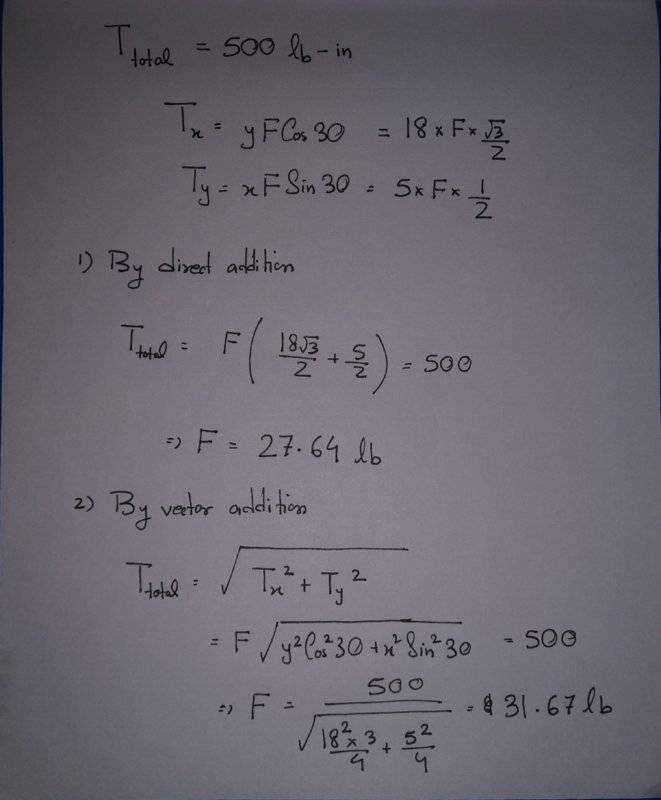 T total = 500 lb-in
Tx = yFCos30 = 18 x F x √3/2
Ty = xFSin30 = 5 x F x 1/2
1) By direct addition
T total = F ( 18√3/2 + 5/2 ) = 500
=> F = 27.64 lb
2) By vector addition
T total = √(Tx² + Ty²)
= F √(y²Cos²30 + x²Sin²30) = 500
=> F = 500/√(18²x3/4 + 5²/4) = 31.67 lb